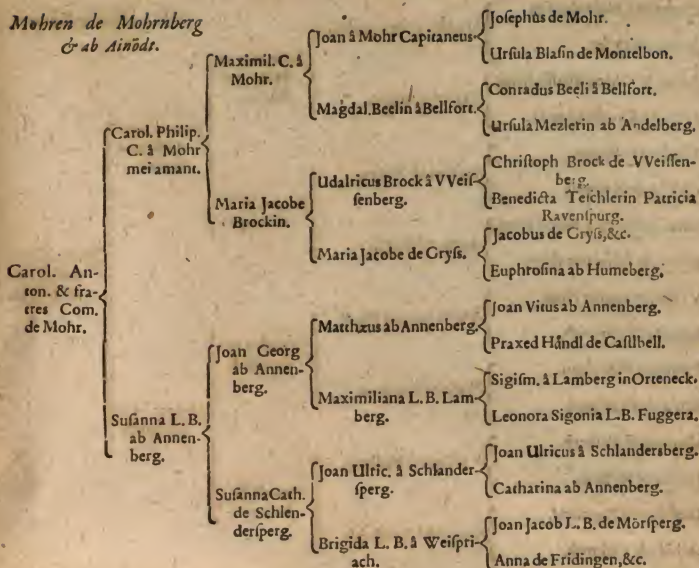 Mohren de Mohrnberg
& ab Ainödt.
Carol. An-
ton. & fra-
tres Com.
de Mohr.
Carol. Philip.
C. â Mohr
mei amant.
Susanna L. B.
ab Annen-
berg.
Maximil. C. â
Mohr.
Maria Jacobe
Brockin.
Joan Georg
ab Annen-
berg.
SusannaCath.
de Schlen-
dersperg.
Joan â Mohr Capitaneus
Magdal. Beelin âBellfort.
Udalricus Brock â VVeis-
senberg.
Maria Jacobe de Gryss.
Matthæus ab Annenberg.
Maximiliana L. B. Lam-
berg.
Joan Ulric. â Schlander-
sperg.
Brigida L. B. â Weispri-
ach.
Josephus de Mohr.
Ursula Blasin de Montelbon.
Conradus Beeli â Bellfort.
Ursula Mezlerin ab Andelberg.
Christoph Brock de VVeissen-
berg.
Benedicta Teichlerin Patricia
Ravenspurg.
Jacobus de Gryss, &c.
Euphrosina ab Humeberg.
Joan Vitus ab Annenberg.
Praxed Håndl de Castlbell.
Sigism. â Lamberg in Orteneck.
Leonora Sigonia L. B. Fuggera.
Joan Ulricus â Schlandersberg.
Catharina ab Annenberg.
Joan Jacob L. B. de Mörsperg.
Anna de Fridingen, &c.